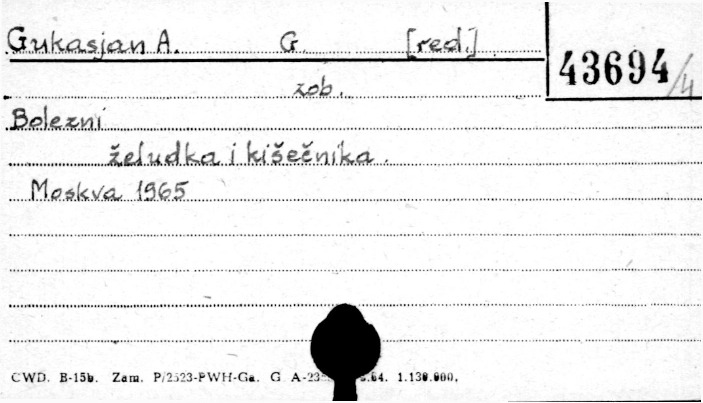 Gukasjan A. G. [red.]
43694/4
zob.
Bolezni
želudka i kišečnika.
Moskva 1965
CWD. B-15b. Zam. P/2523-PWH-Ga. G A-23 .64. 1.130.000.